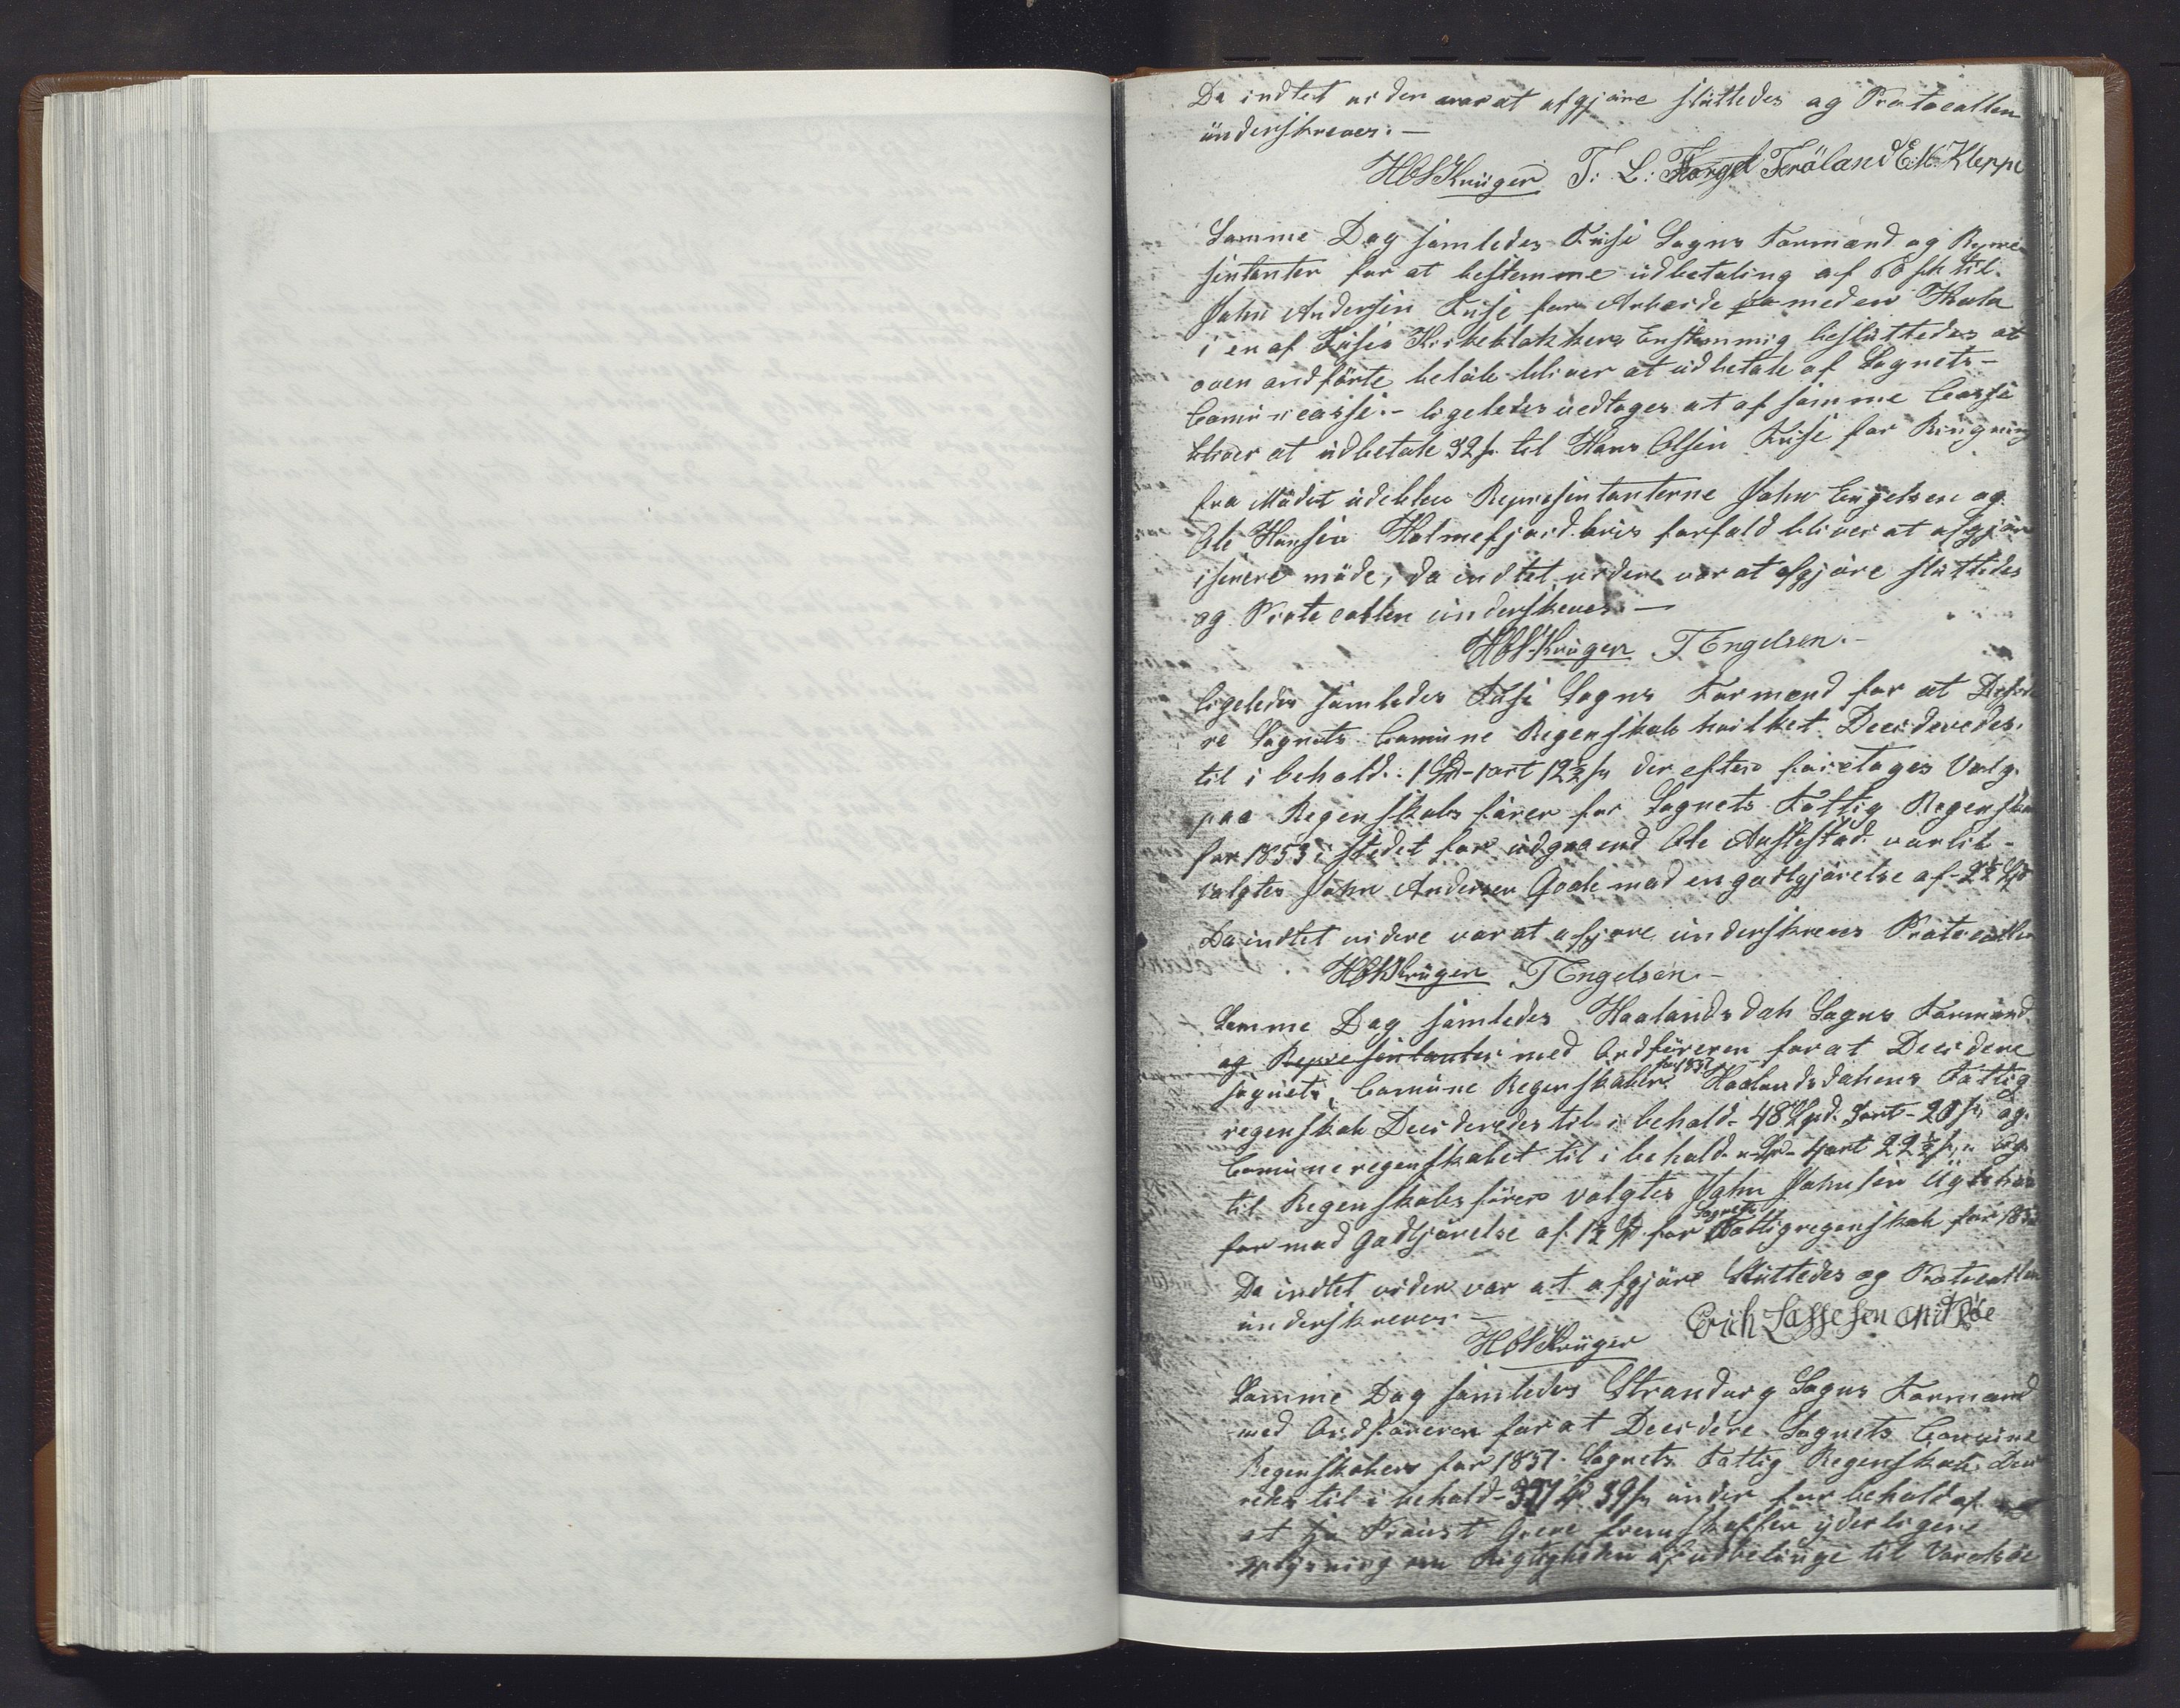 Da indtet vider var at afgjøre sluttedes og Protocollen
underskreves. —
HCS Krüger T: L: Torgel Tröland E. N. Kleppe
Samme Dag samledes Fuse Sogns Formænd og Repre
sentanter for at bestemme udbetaling af 60 sk til
John Andersen Fuse for Arbeide med en
i en af Fuse Kirkeklokker Enstemmig besluttedes at
oven andførte beløb bliver at udbetale af Sognets
Comunecasse. - ligeledes vedtages at af samme Casse
bliver at udbetale 32 s til Hans Olsen Fuse for Ringning
fra Mødet udeblev Representanterne John Engelsen og
Ole Hansen Holmefjord hvis forfald bliver at afgjøre
i senere møde, da indtet videre var at afgjøre sluttedes
og Protocollen underskreves. —
HCS Krüger T Engelsen. -
ligeledes samledes Fuse Sogns Formænd for at Deside
re Sognets Comune Regenskab hvilket Decideredes
til i behold: 1 Spd - 1 ort 12½ s der efter foretages Valg
paa Regenskabsfører for Sognets Fattig Regenskab
for 1853 i stedet for udgaaend Ole Austestad vorlil-
valgtes John Andersen Gode mod en godtgjørelse af - 2½ Spd
Da indtet videre var at afgjøre underskreves Protocollen
HCS Krüger T Engelsen. -
Samme Dag samledes Haalandsdals Sogns Formænd
og Representanter med Ordføreren for at Decidere
Sognets Comune Regenskaber for 1851 Haalandsdalens Fattig
regenskab Decideredes til i behold - 48 Spd. 3 ort - 20 s og
Comuneregenskabet til i behold - Spd - 4 ort 22½ s og
til Regenskabsfører valgtes John Johnsen
for mod Godtjørelse af 1½ Spd for Sognets Fattigregenskab for 185
Da indtet vider var at afgjøre Sluttedes og Protocollen
underskreves. -
HCS Krüger Erich Lassesen
Samme Dag samledes Strandvig Sogns Formænd
med Ordføreren for at Decidere Sognets Comune
Regenskaber for 1851. Sognets Fattig Regenskab Deci
redes til i behold - 39 s under forbehold af
at Provst Greve fremskaffer yderligere
oplysning om Rigtigheden af udbetalinge til